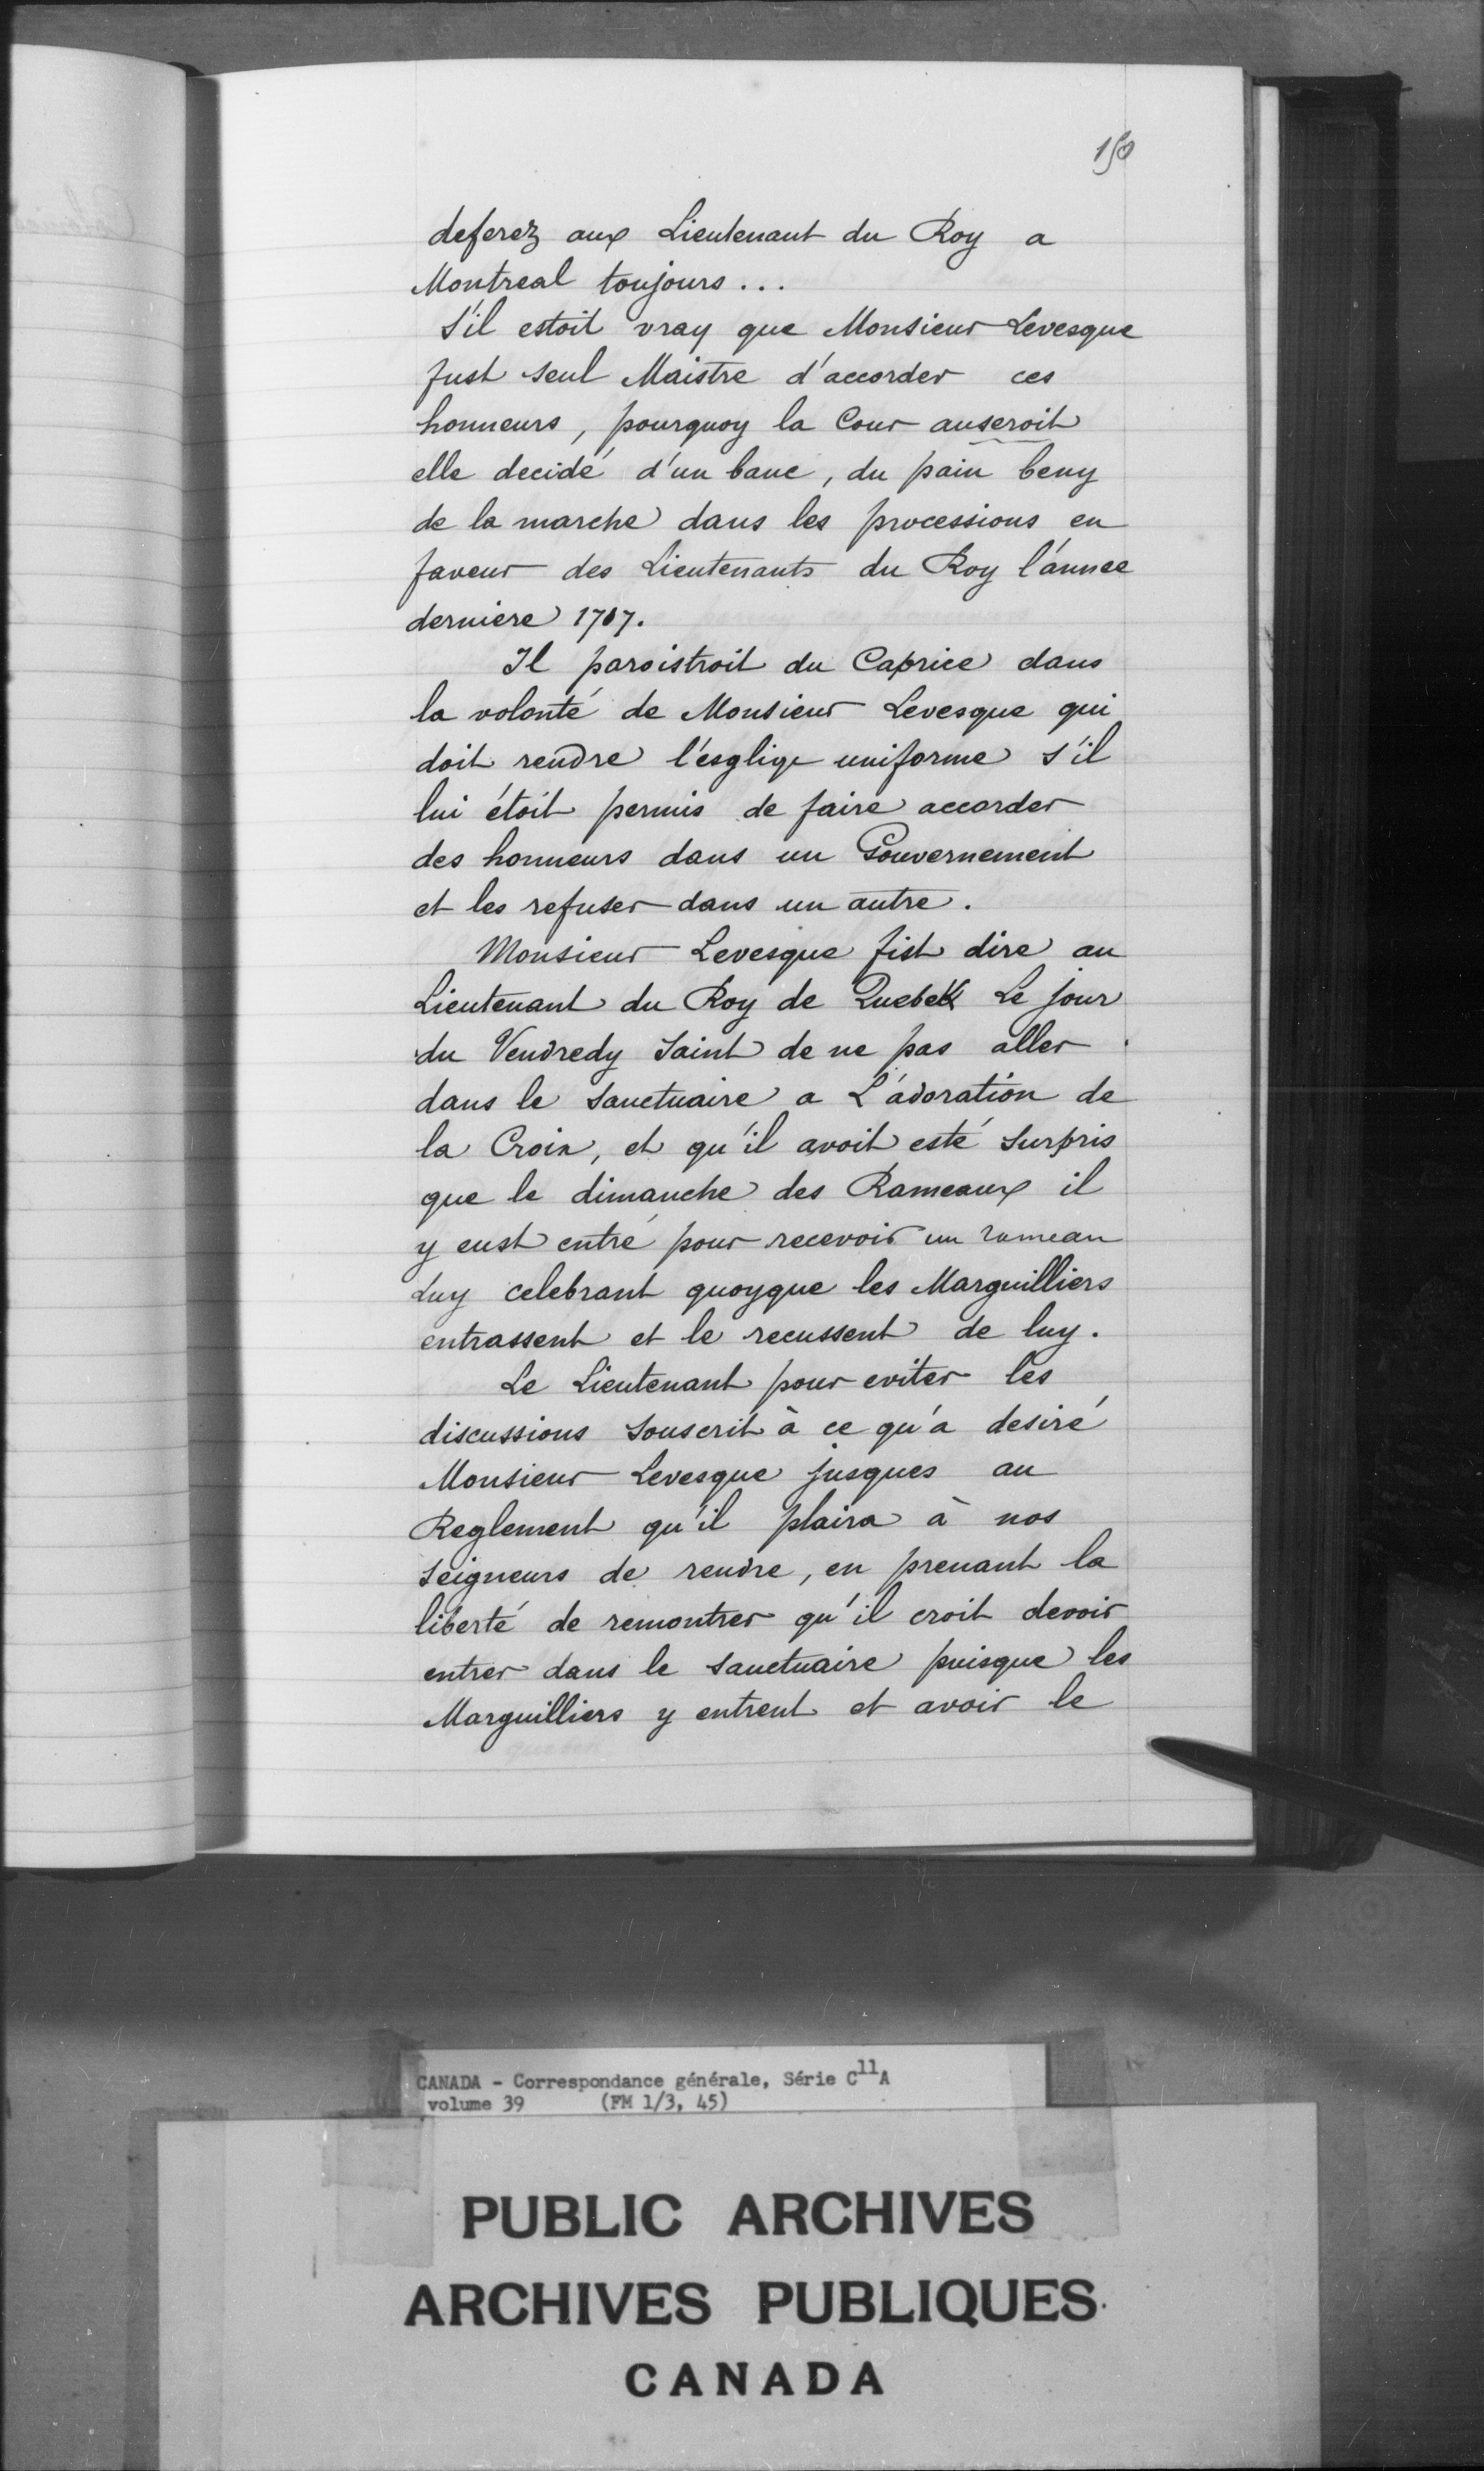 150
deferez aux Lieutenant du Roy a
Montreal toujours...
S'il estoit vray que Monsieur Levesque
fust seul Maistre d'accorder ces
honneurs, pourquoy la Cour auseroit
elle decidé d'un banc, du pain beny
de la marche dans les processions en
faveur des Lieutenants du Roy l'annee
derniere 1717.
Il paroistroit du Caprice dans
la volonté de Monsieur Levesque qui
doit rendre l'esglise uniforme s'il
lui étoit permis de faire accorder
des honneurs dans un Gouvernement
et les refuser dans un autre.
Monsieur Levesque fist dire au
Lieutenant du Roy de Quebek Le jour
du Vendredy Saint de ne pas aller
dans le Sanctuaire a L'adoration de
la Croix, et qu'il avoit esté surpris
que le dimanche des Rameaux il
y eust entré pour recevoir un rameau
Luy celebrant quoyque les Marguilliers
entrassent et le recussent de luy.
Le Lieutenant pour eviter les
discussions souscrit à ce qu'a desiré
Monsieur Levesque jusques au
Reglement qu'il plaira à nos
Seigneurs de rendre, en prenant la
liberté de remontrer qu'il croit devoir
entrer dans le Sanctuaire puisque les
Marguilliers y entrent et avoir le
CANADA - Correspondance générale, Série C11A
volume 39 (FM 1/3, 45)
PUBLIC ARCHIVES
ARCHIVES PUBLIQUES
CANADA